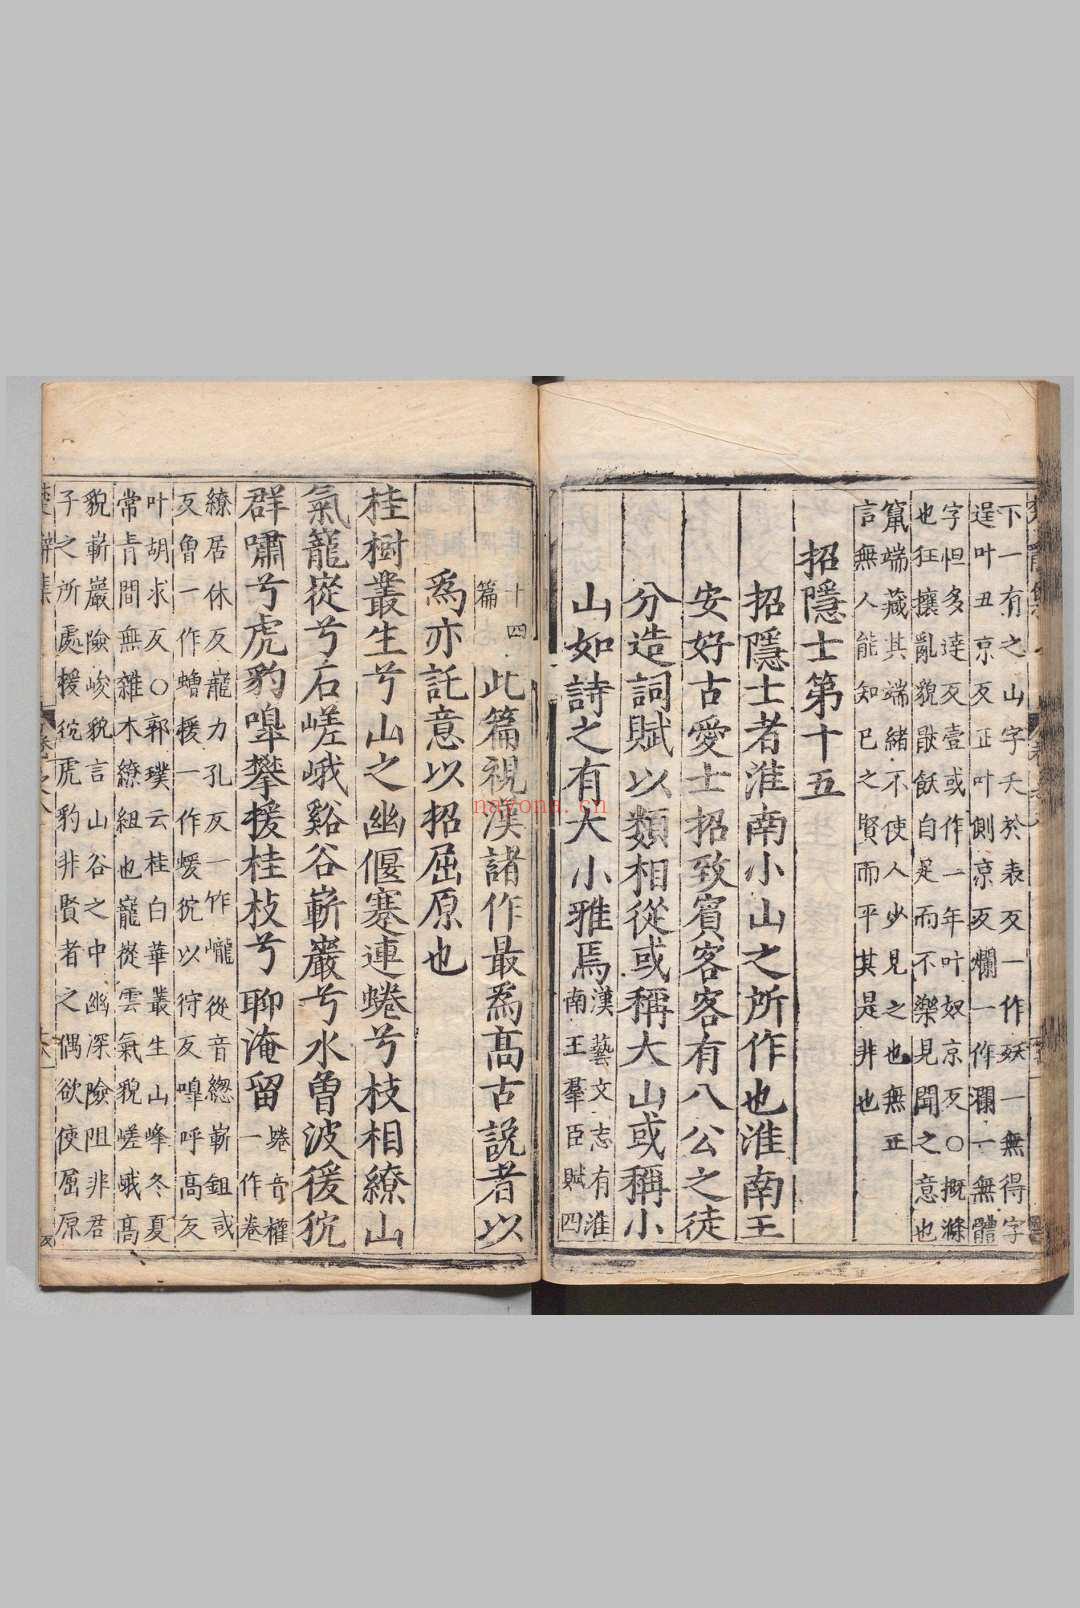 下一有之山字夭於表反一作殀一無得字
逞叶丑京反正叶側京反爛一作瀾一無體
字怛多達反壹或作一年叶奴京反○概滌
也狂攘亂貌猒飫自足而不樂見聞之意也
竄端藏其端緒不使人少見之也無正
言無人能知已之賢而平其是非也
招隱士第十五
招隱士者淮南小山之所作也淮南王
安好古愛士招致賓客客有八公之徒
分造詞賦以類相從或稱大山或稱小
山如詩之有大小雅焉漢藝文志有淮南王羣臣賦四
十四篇此篇視漢諸作最為高古説者以
爲亦託意以招屈原也
桂樹叢生兮山之幽偃蹇連蜷兮枝相繚山
氣巃嵸兮石嵯峨谿谷嶄巖兮水曾波猨狖
群嘯兮虎豹嘷攀援桂枝兮聊淹留蜷音權一作卷
繚居休反巃力孔反一作巄從音緫嶄鉏或
反曾一作䲆猨一作蝯狖以狩反嘷呼高反
叶胡求反○郭璞云桂白華叢生山峰冬夏
常青間無雜木繚紐也巃嵸雲氣貌嵯峨高
貌嶄巖險峻貌言山谷之中幽深險阻非君
子之所處猨狖虎豹非賢者之偶欲使屈原
nayona.cn